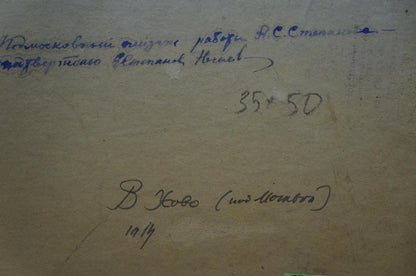 Подмосковный пейзаж работы А.С. Степанова –
подтверждаю Степанов
35 × 50
В Хово (под Москвой)
1914